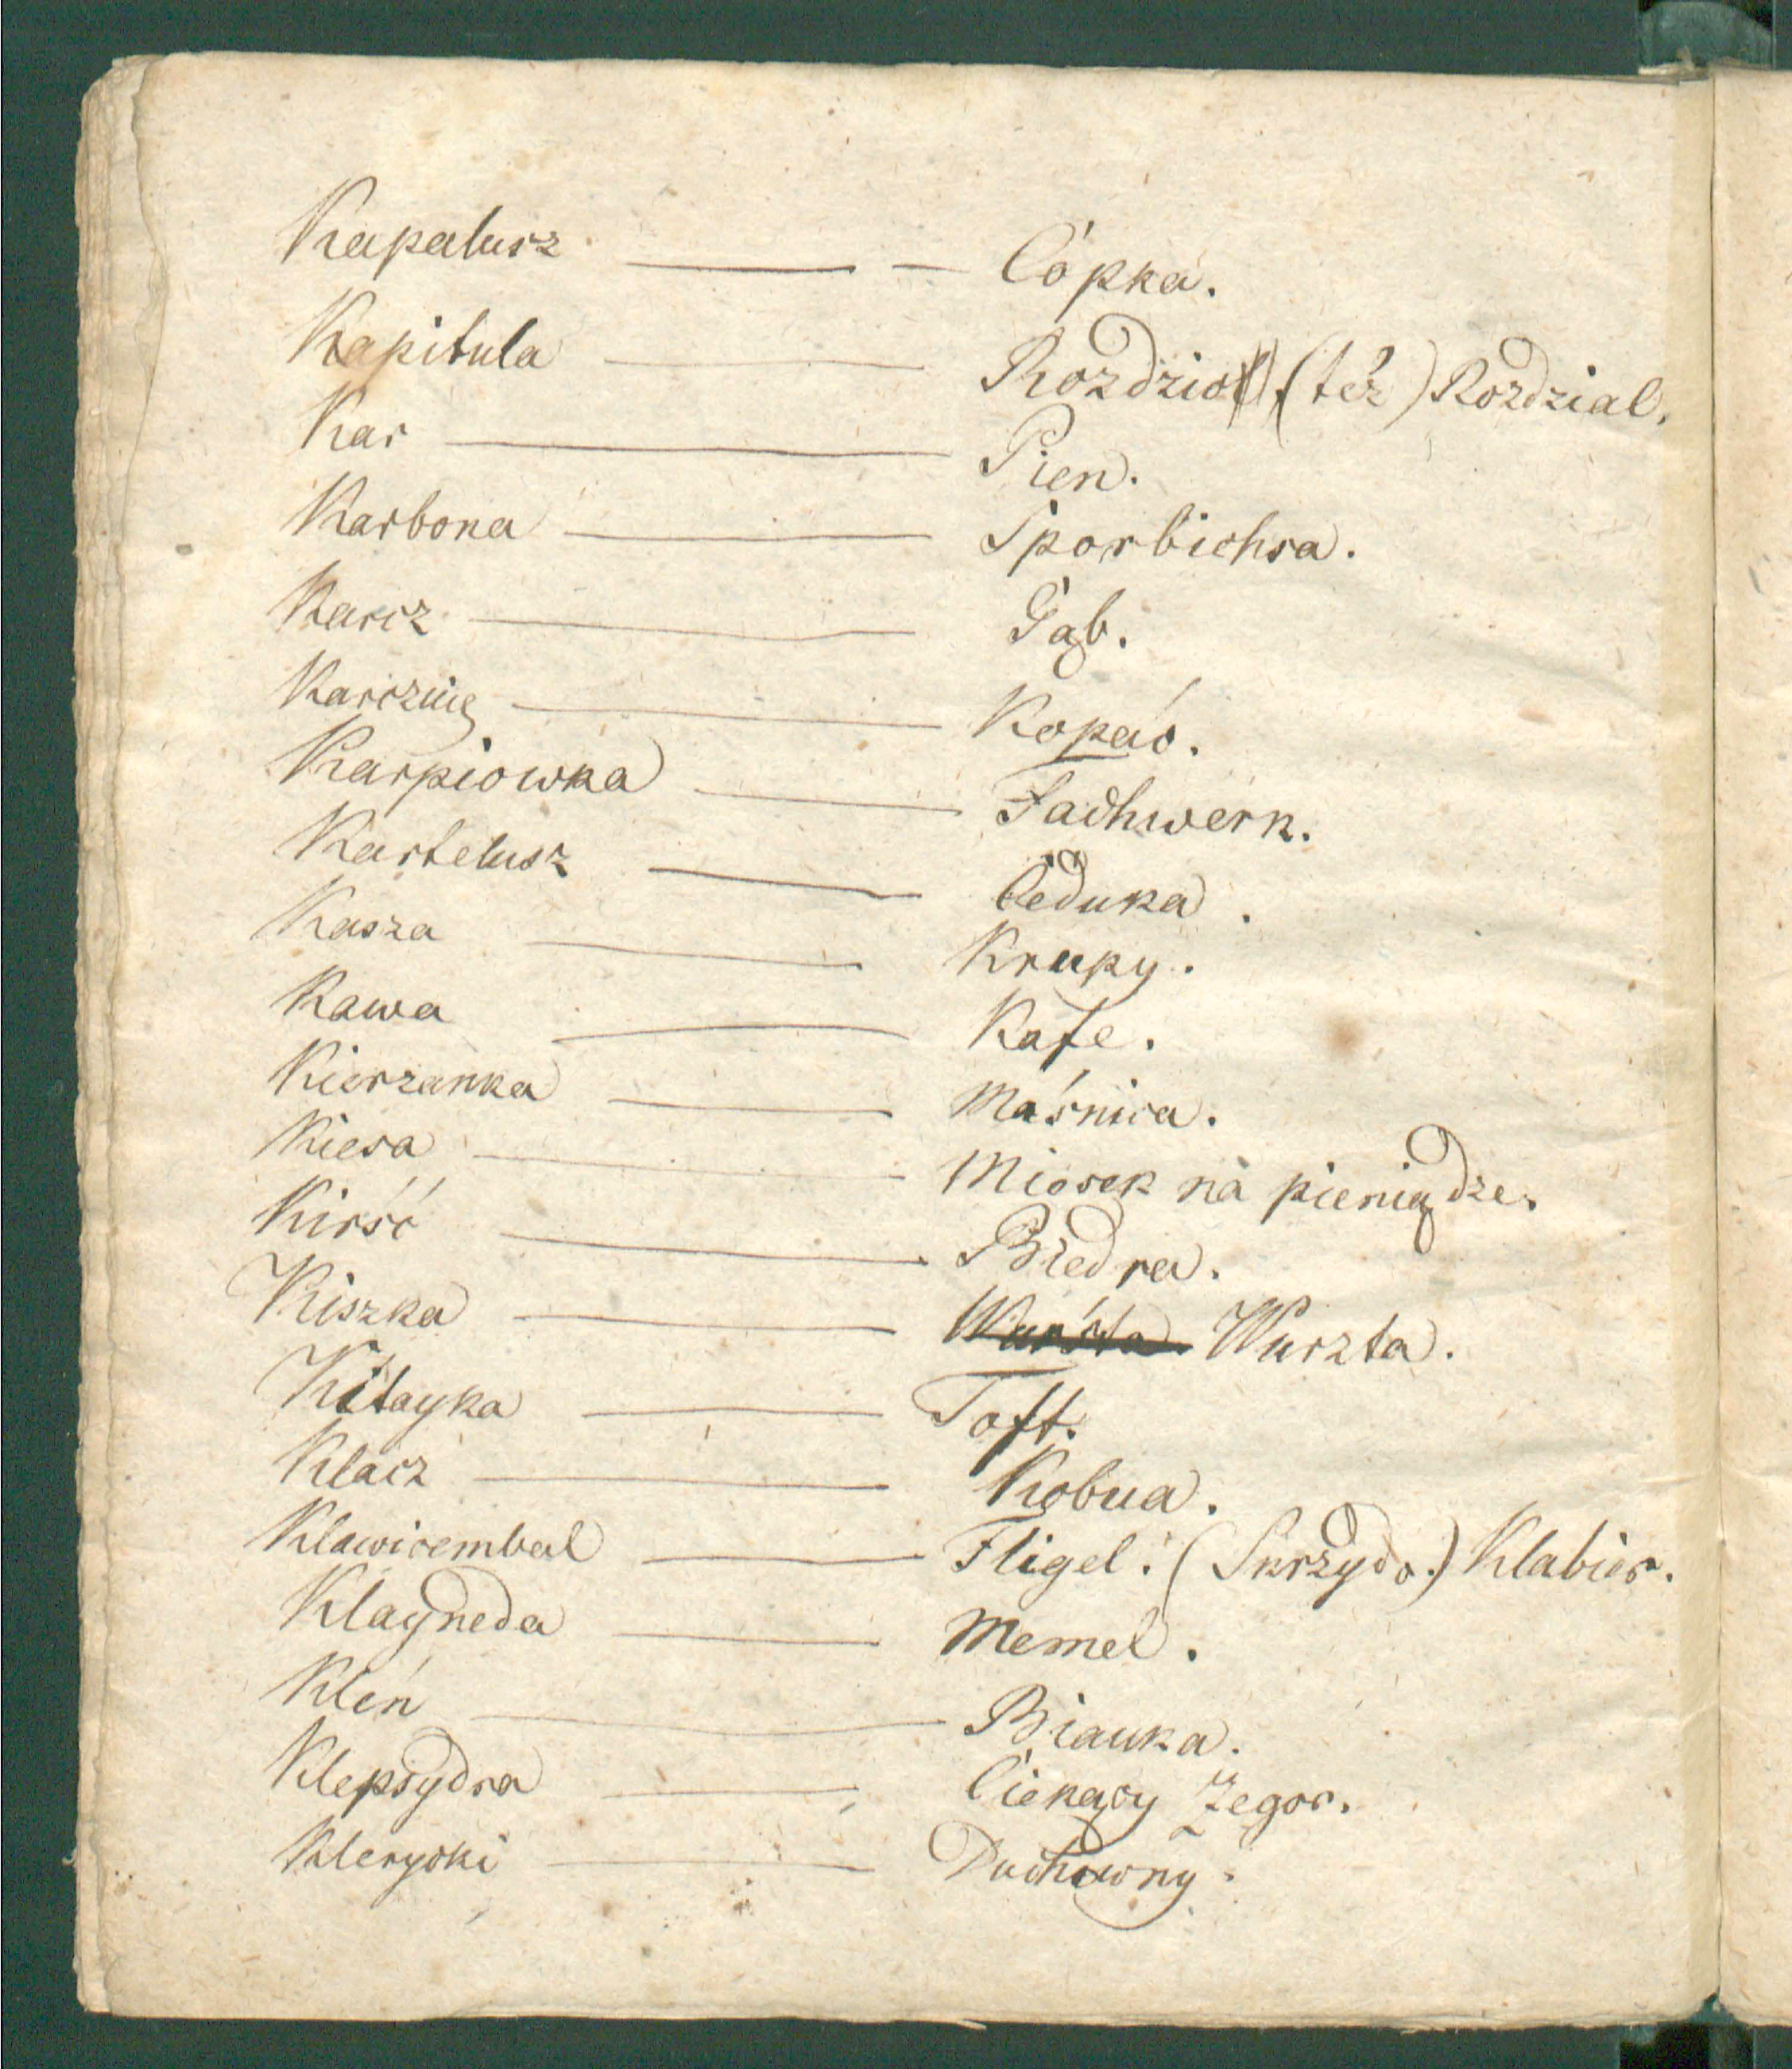 Kapalusz — — Cópka.
Kapitula — Rozdzioł (też) Rozdzial.
Kar — Pien.
Karbona — Sporbichsa.
Karcz — Gąb.
Karczuię — Kopać.
Karpiowka — Fachwerk.
Kartelusz — Ceduka.
Kasza — Krupy.
Kawa — Kafe.
Kierzanka — Maśnica.
Kiesa — Miosek na pieniądze.
Kirść — Biedra.
Kiszka — Wurśta. Wurzta.
Kitayka — Toft.
Klacz — Kobua.
Klawicembal — Fligel. (Skrzydo.) Klabier.
Klayneda — Memel.
Kleń — Biauka.
Klepsydra — Ciekący Zegor.
Kleryski — Duchowny.